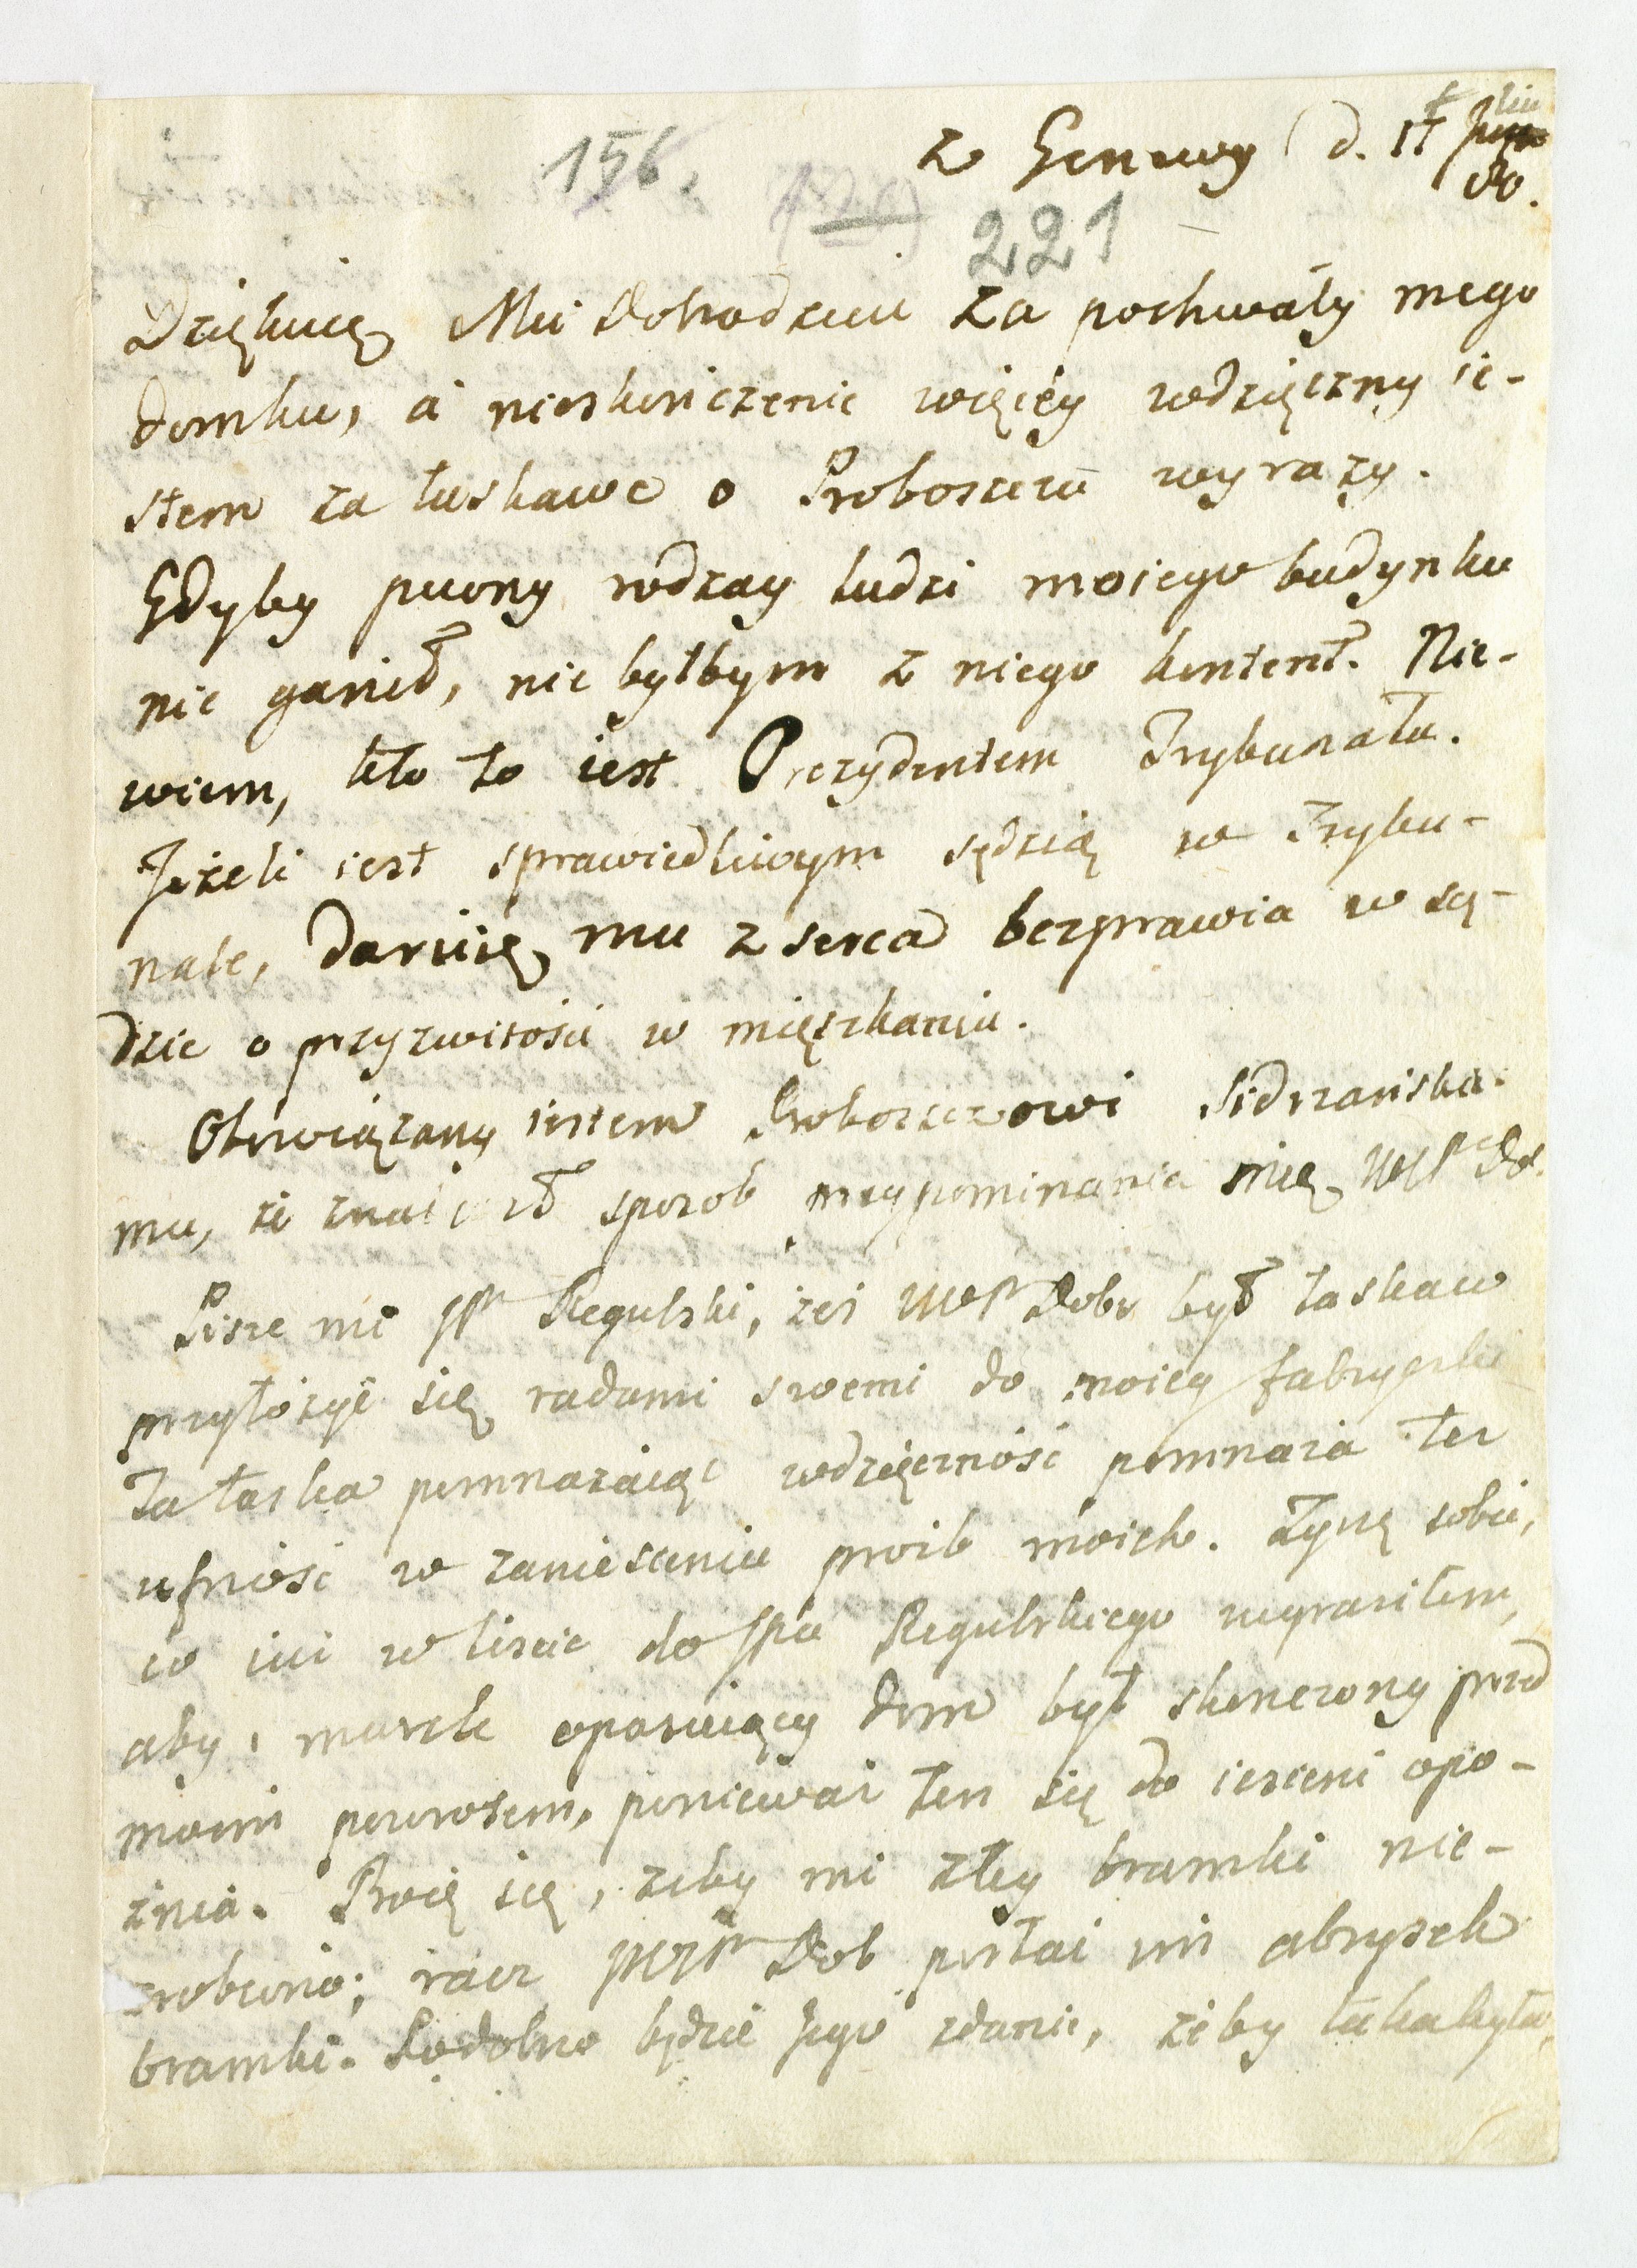 156.
z Genewy d. 17
80.
221
Dziękuię Mci Dobrodzieiu za pochwały mego
domku, a nieskończenie więcéy wdzięczny ie-
stem za łaskawe o Proboszczu wyrazy.
Gdyby pewny rodzay ludzi moiego budynku
nie ganił, nie byłbym z niego kontent. Nie-
wiem, kto to iest Prezydentem Trybunału.
Jeżeli iest sprawiedliwym sędzią w Trybu-
nale, daruię mu z serca bezprawia w są-
dzie o przyzwitości w mięszkaniu.
Obowiązany iestem Proboszczowi
mu, że znalazł sposob przypominania mię WMP Do.
Pisze mi JP Regulski, żeś WMP Dobr był łaskaw
przyłożyć się radami swemi do moiey fabryczki
Ta łaska pomnażaiąc wdzięczność pomnaża też
ufność w zaniesieniu proźb moich. Życzę sobie,
co iuż w liście do JPa Regulskiego wyraziłem,
aby murek opasuiący dom był skończony przed
moim powrotem, ponieważ ten się do iesieni opo-
źnia. Boię się, żeby mi złey bramki nie-
zrobiono; racz WMP Dob posłać mi abrysek
bramki. Podobno będzie Jego zdanie, żeby taka była,